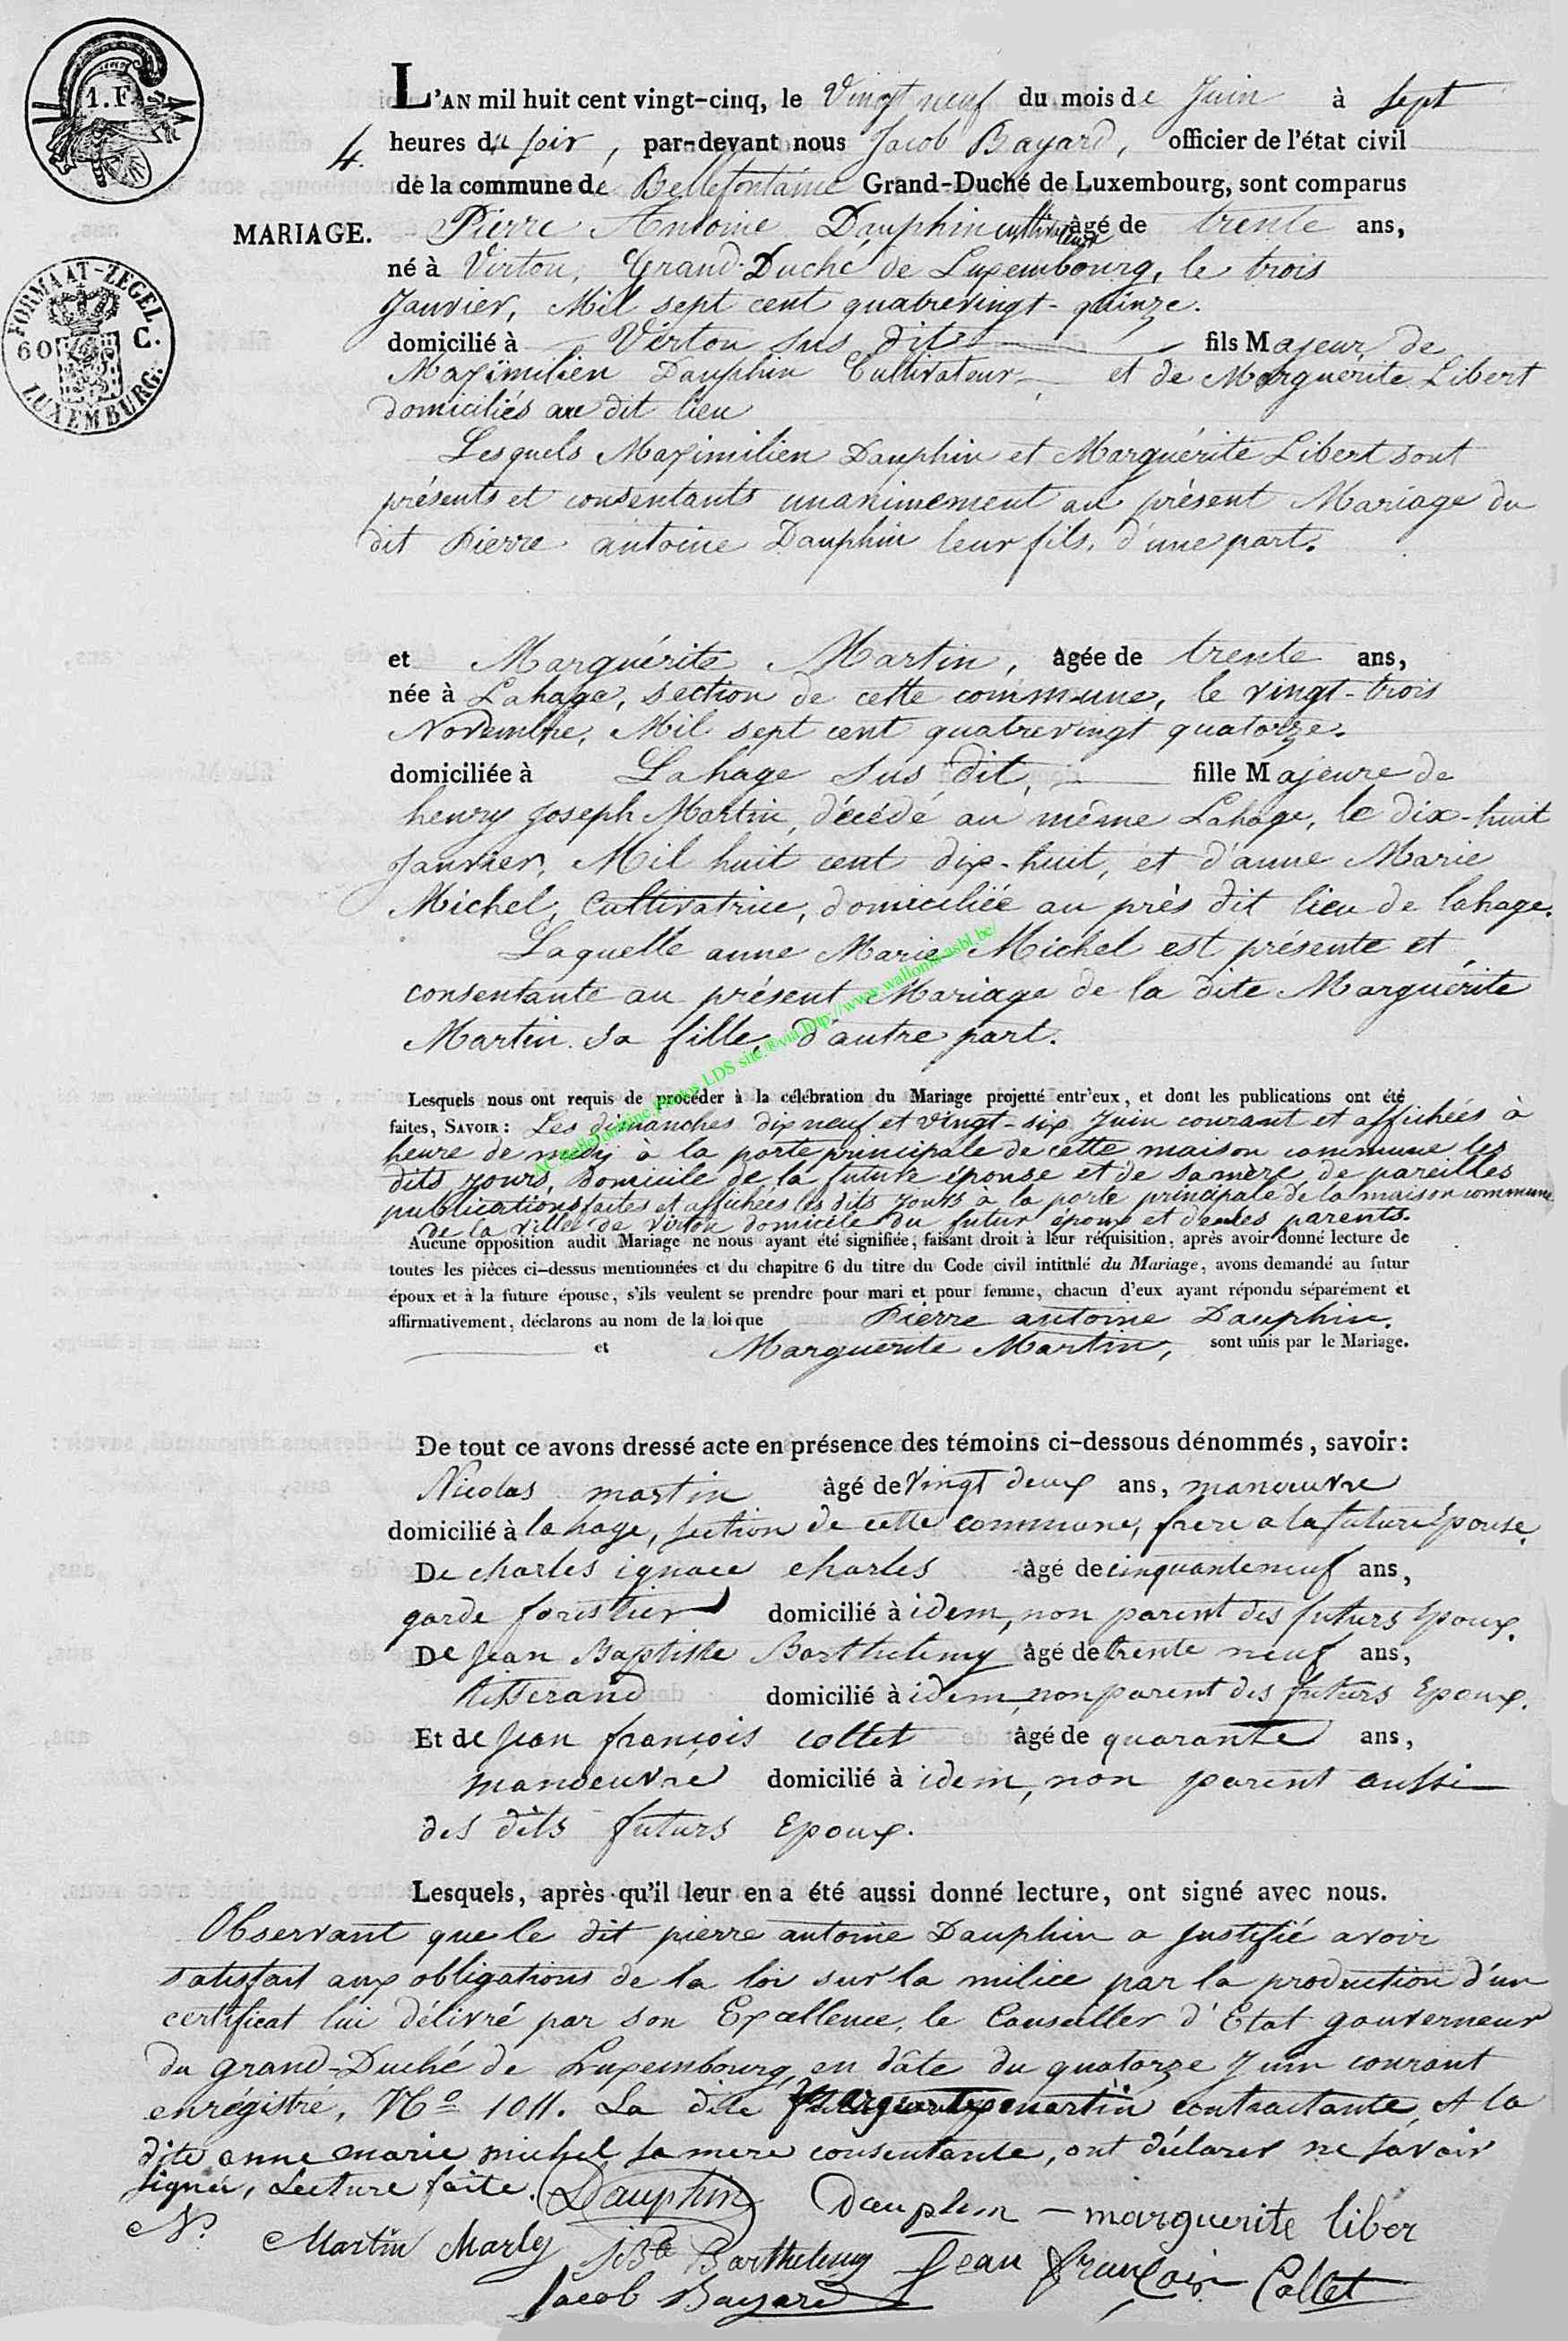 1. F
4.
MARIAGE.
FORMAAT-ZEGEL.
60 C.
LUXEMBURG.
L'AN mil huit cent vingt-cinq, le Vingt neuf du mois de Juin à sept
heures du soir, par-devant nous Jacob Bayard, officier de l'état civil
de la commune de Bellefontaine Grand-Duché de Luxembourg, sont comparus
Pierre Antoine Dauphin cultivateur âgé de trente ans,
né à Virton, Grand-Duché de Luxembourg, le trois
Janvier, Mil sept cent quatrevingt-quinze.
domicilié à Virton sus dit fils Majeur de
Maximilien Dauphin Cultivateur et de Marguerite Libert
domiciliés au dit lieu
Lesquels Maximilien Dauphin et Marguérite Libert sont
présents et consentants unanimement au présent Mariage du
dit Pierre antoine Dauphin leur fils, d'une part.
et Marguérite Martin, âgée de trente ans,
née à Lahage, section de cette commune, le vingt-trois
Novembre, Mil sept cent quatrevingt quatorze.
domiciliée à Lahage sus dit, fille Majeure de
henry Joseph Martin, décédé au même Lahage, le dix-huit
Janvier, Mil huit cent dix-huit, et d'anne Marie
Michel, Cultivatrice, domiciliée au près dit lieu de lahage.
Laquelle anne Marie Michel est présente et
consentante au présent Mariage de la dite Marguérite
Martin sa fille, d'autre part.
Lesquels nous ont requis de procéder à la célébration du Mariage projetté entr'eux, et dont les publications ont été
faites, SAVOIR : Les dimanches dix neuf et vingt-six Juin courant et affichées à
heure de midy à la porte principale de cette maison commune les
dits jours, Domicile de la future épouse et de sa mère, de pareilles
publications faites et affichées les dits jours à la porte principale de la maison commune
de la ville de Virton domicile du futur époux et de ses parents.
Aucune opposition audit Mariage ne nous ayant été signifiée, faisant droit à leur réquisition, après avoir donné lecture de
toutes les pièces ci-dessus mentionnées et du chapitre 6 du titre du Code civil intitulé du Mariage, avons demandé au futur
époux et à la future épouse, s'ils veulent se prendre pour mari et pour femme, chacun d'eux ayant répondu séparément et
affirmativement, déclarons au nom de la loi que Pierre antoine Dauphin.
et Marguerite Martin, sont unis par le Mariage.
De tout ce avons dressé acte en présence des témoins ci-dessous dénommés, savoir :
Nicolas martin âgé de Vingt deux ans, manoeuvre
domicilié à lahage, section de cette commune, frere a la future Epouse.
De charles ignace charles âgé de cinquante neuf ans,
garde forestier domicilié à idem, non parent des futurs Epoux.
De Jean Baptiste Barthelemy âgé de trente neuf ans,
tisserand domicilié à idem, non parent des futurs Epoux.
Et de Jean françois collet âgé de quarante ans,
manoeuvre domicilié à idem, non parent aussi
des dits futurs Epoux.
Lesquels, après qu'il leur en a été aussi donné lecture, ont signé avec nous.
Observant que le dit pierre antoine Dauphin a Justifié avoir
satisfait aux obligations de la loi sur la milice par la production d'un
certificat lui délivré par son Excellence, le Conseiller d'Etat gouverneur
du grand-Duché de Luxembourg, en date du quatorze Juin courant
enrégistré, No 1011. La dite Marguerite martin contractante, et la
dite anne marie michel sa mere consentante, ont déclarer ne savoir
signer, Lecture faite. Dauphin Dauphin - marguerite liber
N. Martin Charles JBte Barthelemy Jean françois Collet
Jacob Bayard
AC Bellefontaine Photos LDS site ®via http://www.wallonia-asbl.be/